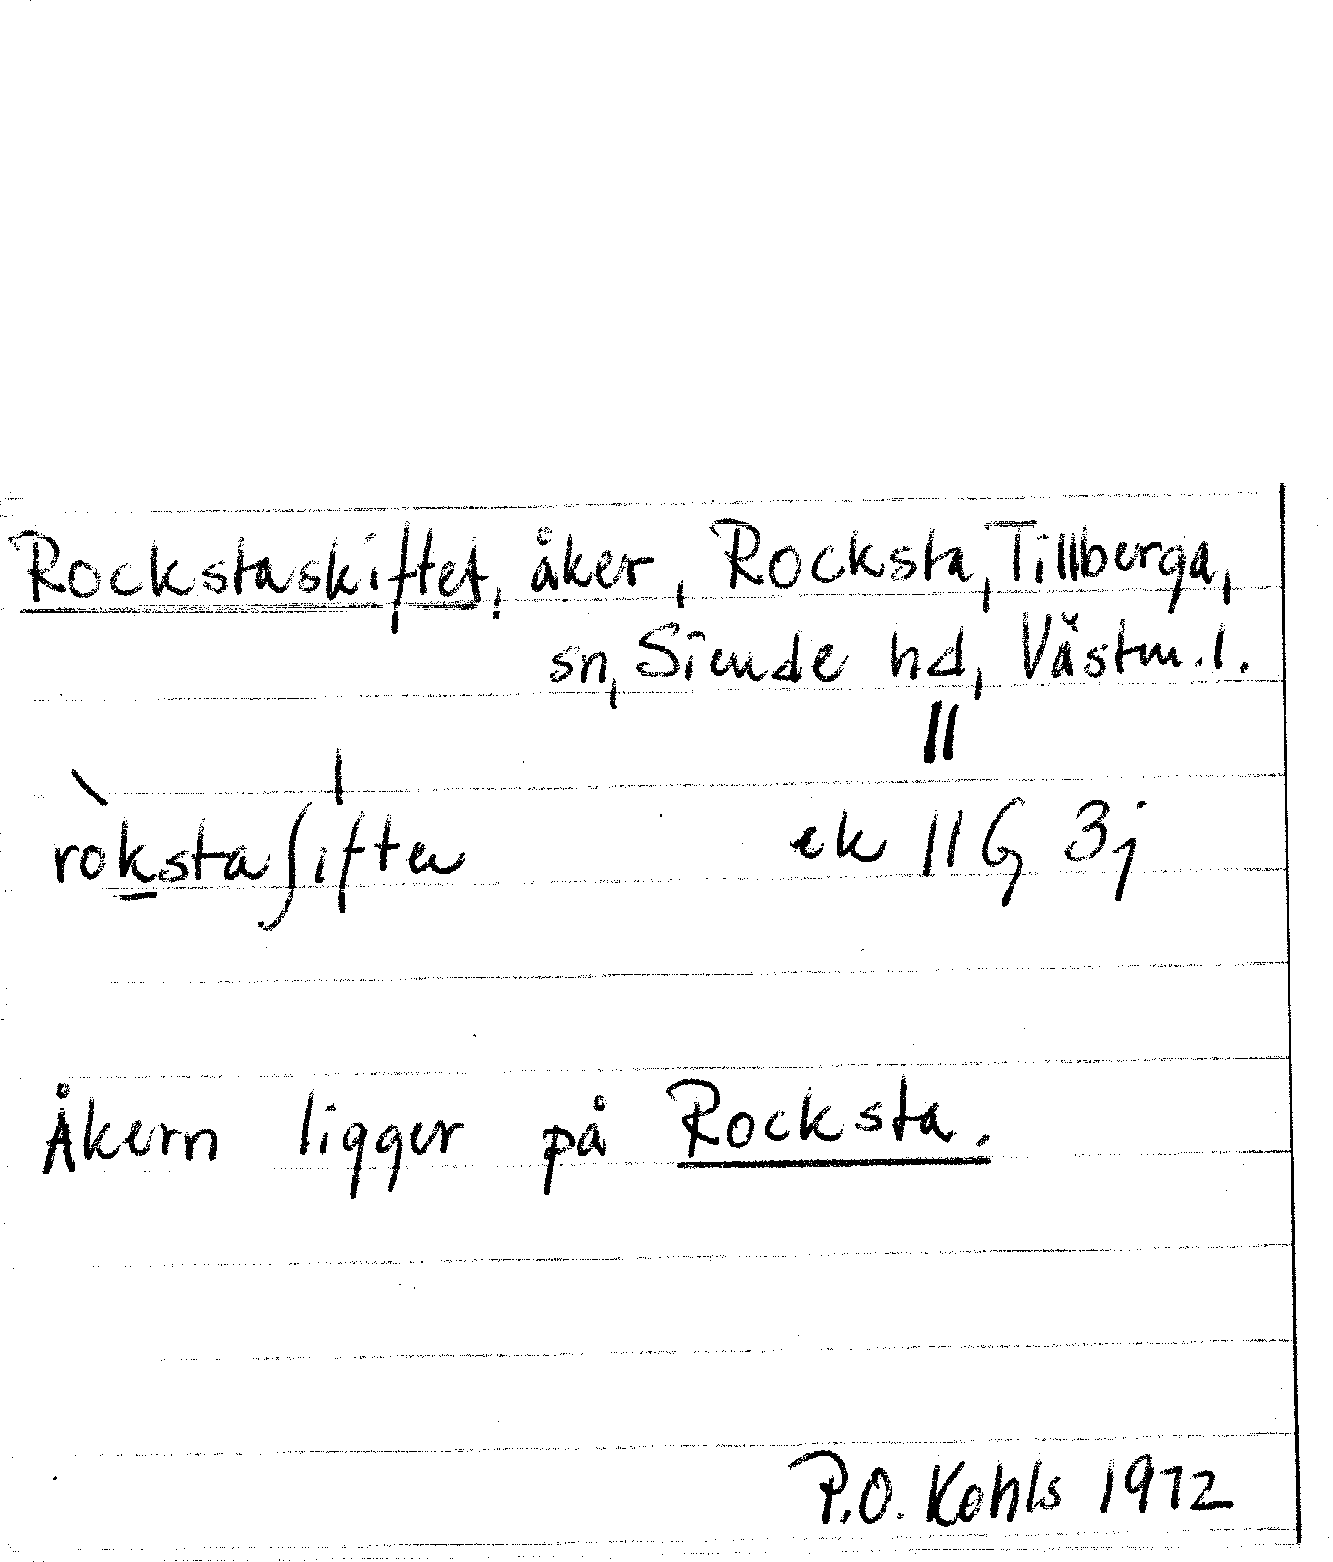 Rockstaskiftet, åker, Rocksta, Tillberga,
sn, Siende hd, Västm. l.
rok̲staʃiften ek 11G 3j
Åkern ligger på Rocksta.
P.O. Kohls 1972